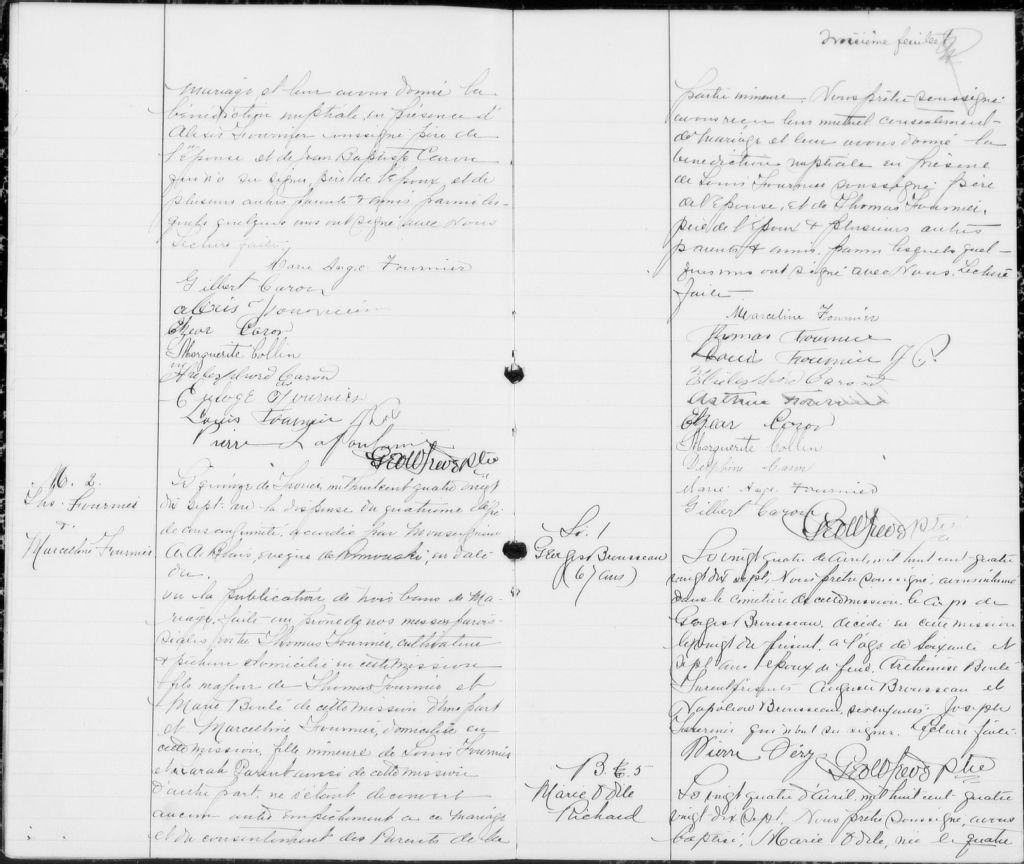 mariage et leur avons donné la
bénédiction nuptiale en présence d'
Alexis Fournier soussigné père de
l'épouse et de Jean Baptiste Caron
qui n'a su signer, père de l'époux, et de
plusieurs autres parents & amis, parmi les-
quels quelques uns ont signé avec nous
Lecture faite.
Marie Ange Fournier
Gilbert Caron
alexis Fournier
Elzear Caron
Marguerite Collin
Caron
Fournier
Louis Fournier
Pierre Lafontaine
Ptre
M. 2.
Ths. Fournier
&
Marceline Fournier
Le quinze de Février mil huit cent quatre vingt
dix sept, vu la dispense du quatrième degré
de consanguinité, accordée par Monseigneur
A A Blais, évêque de Rimouski, en date
du.
vu la publication de trois bans de Ma-
riage, faite au prône de nos messes parois-
siales entre Thomas Fournier, cultivateur
& pêcheur domicilié en cette mission
fils majeur de Thomas Fournier et
Marie Boulé de cette mission d'une part
et Marceline Fournier, domiciliée en
cette mission, fille mineure de Louis Fournier
et Sarah Parent aussi de cette mission
d'autre part, ne s'étant découvert
aucun autre empêchement à ce mariage
et du consentement des Parents de la
Troisième feuillet
partie mineure, Nous prêtre soussigné
avons reçu leur mutuel consentement
de mariage et leur avons donné la
bénédiction nuptiale en présence
de Louis Fournier soussigné père
de l'Epouse, et de Thomas Fournier,
père de l'époux & plusieurs autres
parents & amis, parmi lesquels quel-
ques uns ont signé avec Nous. Lecture
faite
Marceline Fournier
Thomas Fournier
Louis Fournier J P.
Caron
Arthur Fournier
Elzear Caron
Marguerite Collin
Delphine Caron
Marie Ange Fournier
Gilbert Caron
Ptre
S. 1
Georges Brousseau
(67 ans)
Le vingt quatre de Avril, mil huit cent quatre
vingt dix sept, Nous prêtre soussigné, avons inhumé
dans le cimetière de cette mission le corps de
Georges Brousseau, décédé en cette mission
le vingt du présent, à l'âge de Soixante et
sept ans, époux de feue Arthémise Boulé
Furent présents Auguste Brousseau et
Napoléon Brousseau, ses enfants, Joseph
Fournier qui n'ont su signer. Lecture faite
Pierre Déry
Ptre
B. 5
Marie Odile
Richard
Le vingt quatre d'Avril, mil huit cent quatre
vingt dix sept, Nous prêtre soussigné, avons
baptisé, Marie Odile, née le quatre